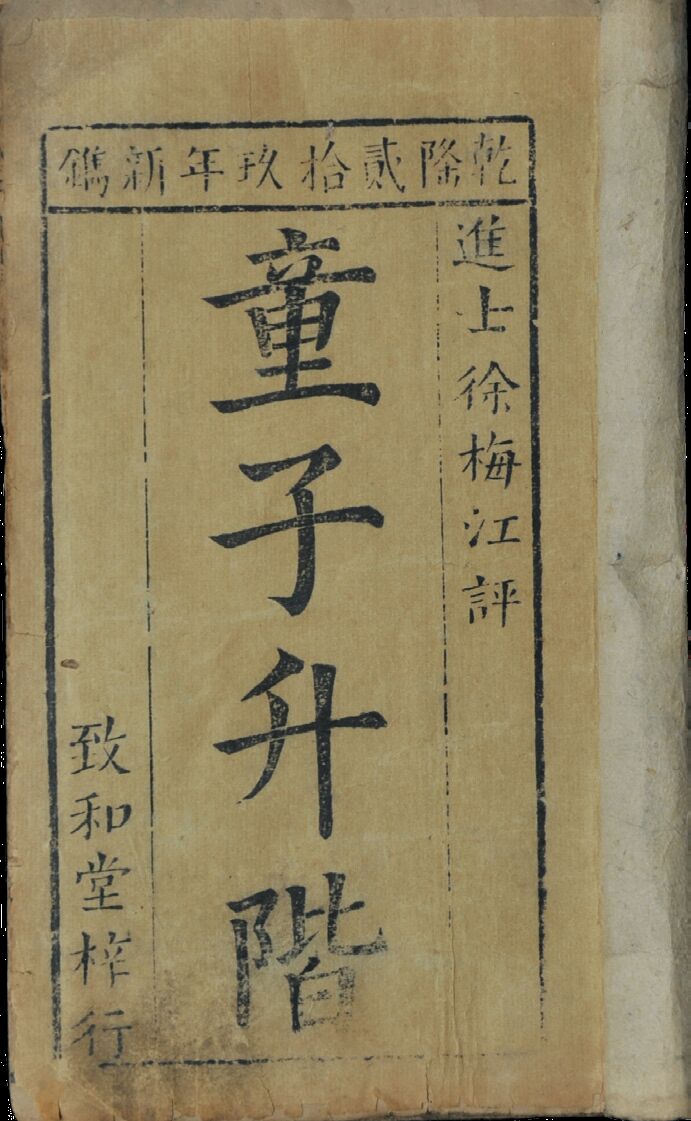 乾隆貳拾玖年新鐫
進士徐梅江評
童子升階
致和堂梓行